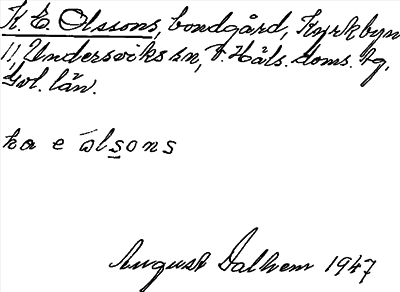 K. E. Olssons, bondgård, Kyrkbyn
11, Undersviks sn, V. Häls. doms. tg,
Gvl. län.
ka e ólsons
August Dalhem 1947